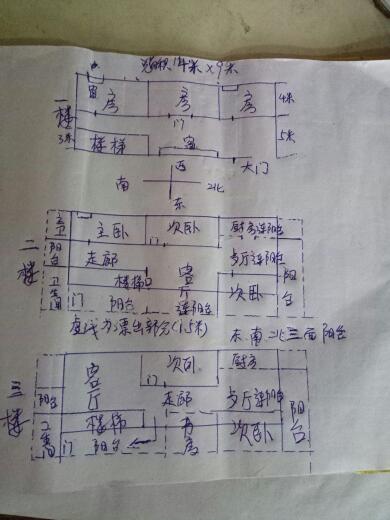 面积14米×9米
一楼
窗 房 房 房 4米
门
3米 楼梯 窗 5米
大门
西
南 北
东
二楼
主卫 主卧 次卧 厨房连阳台
阳台 走廊 门 步厅连阳台 阳台
卫生间 楼梯口 客厅 次卧
门 阳台 连阳台
虚线为票出部分(1.5米) 东.南.北三面阳台
三楼
客厅 次卧 厨房
门
阳台 走廊 步厅连阳台 阳台
卫生间 楼梯 书房 次卧
门 阳台